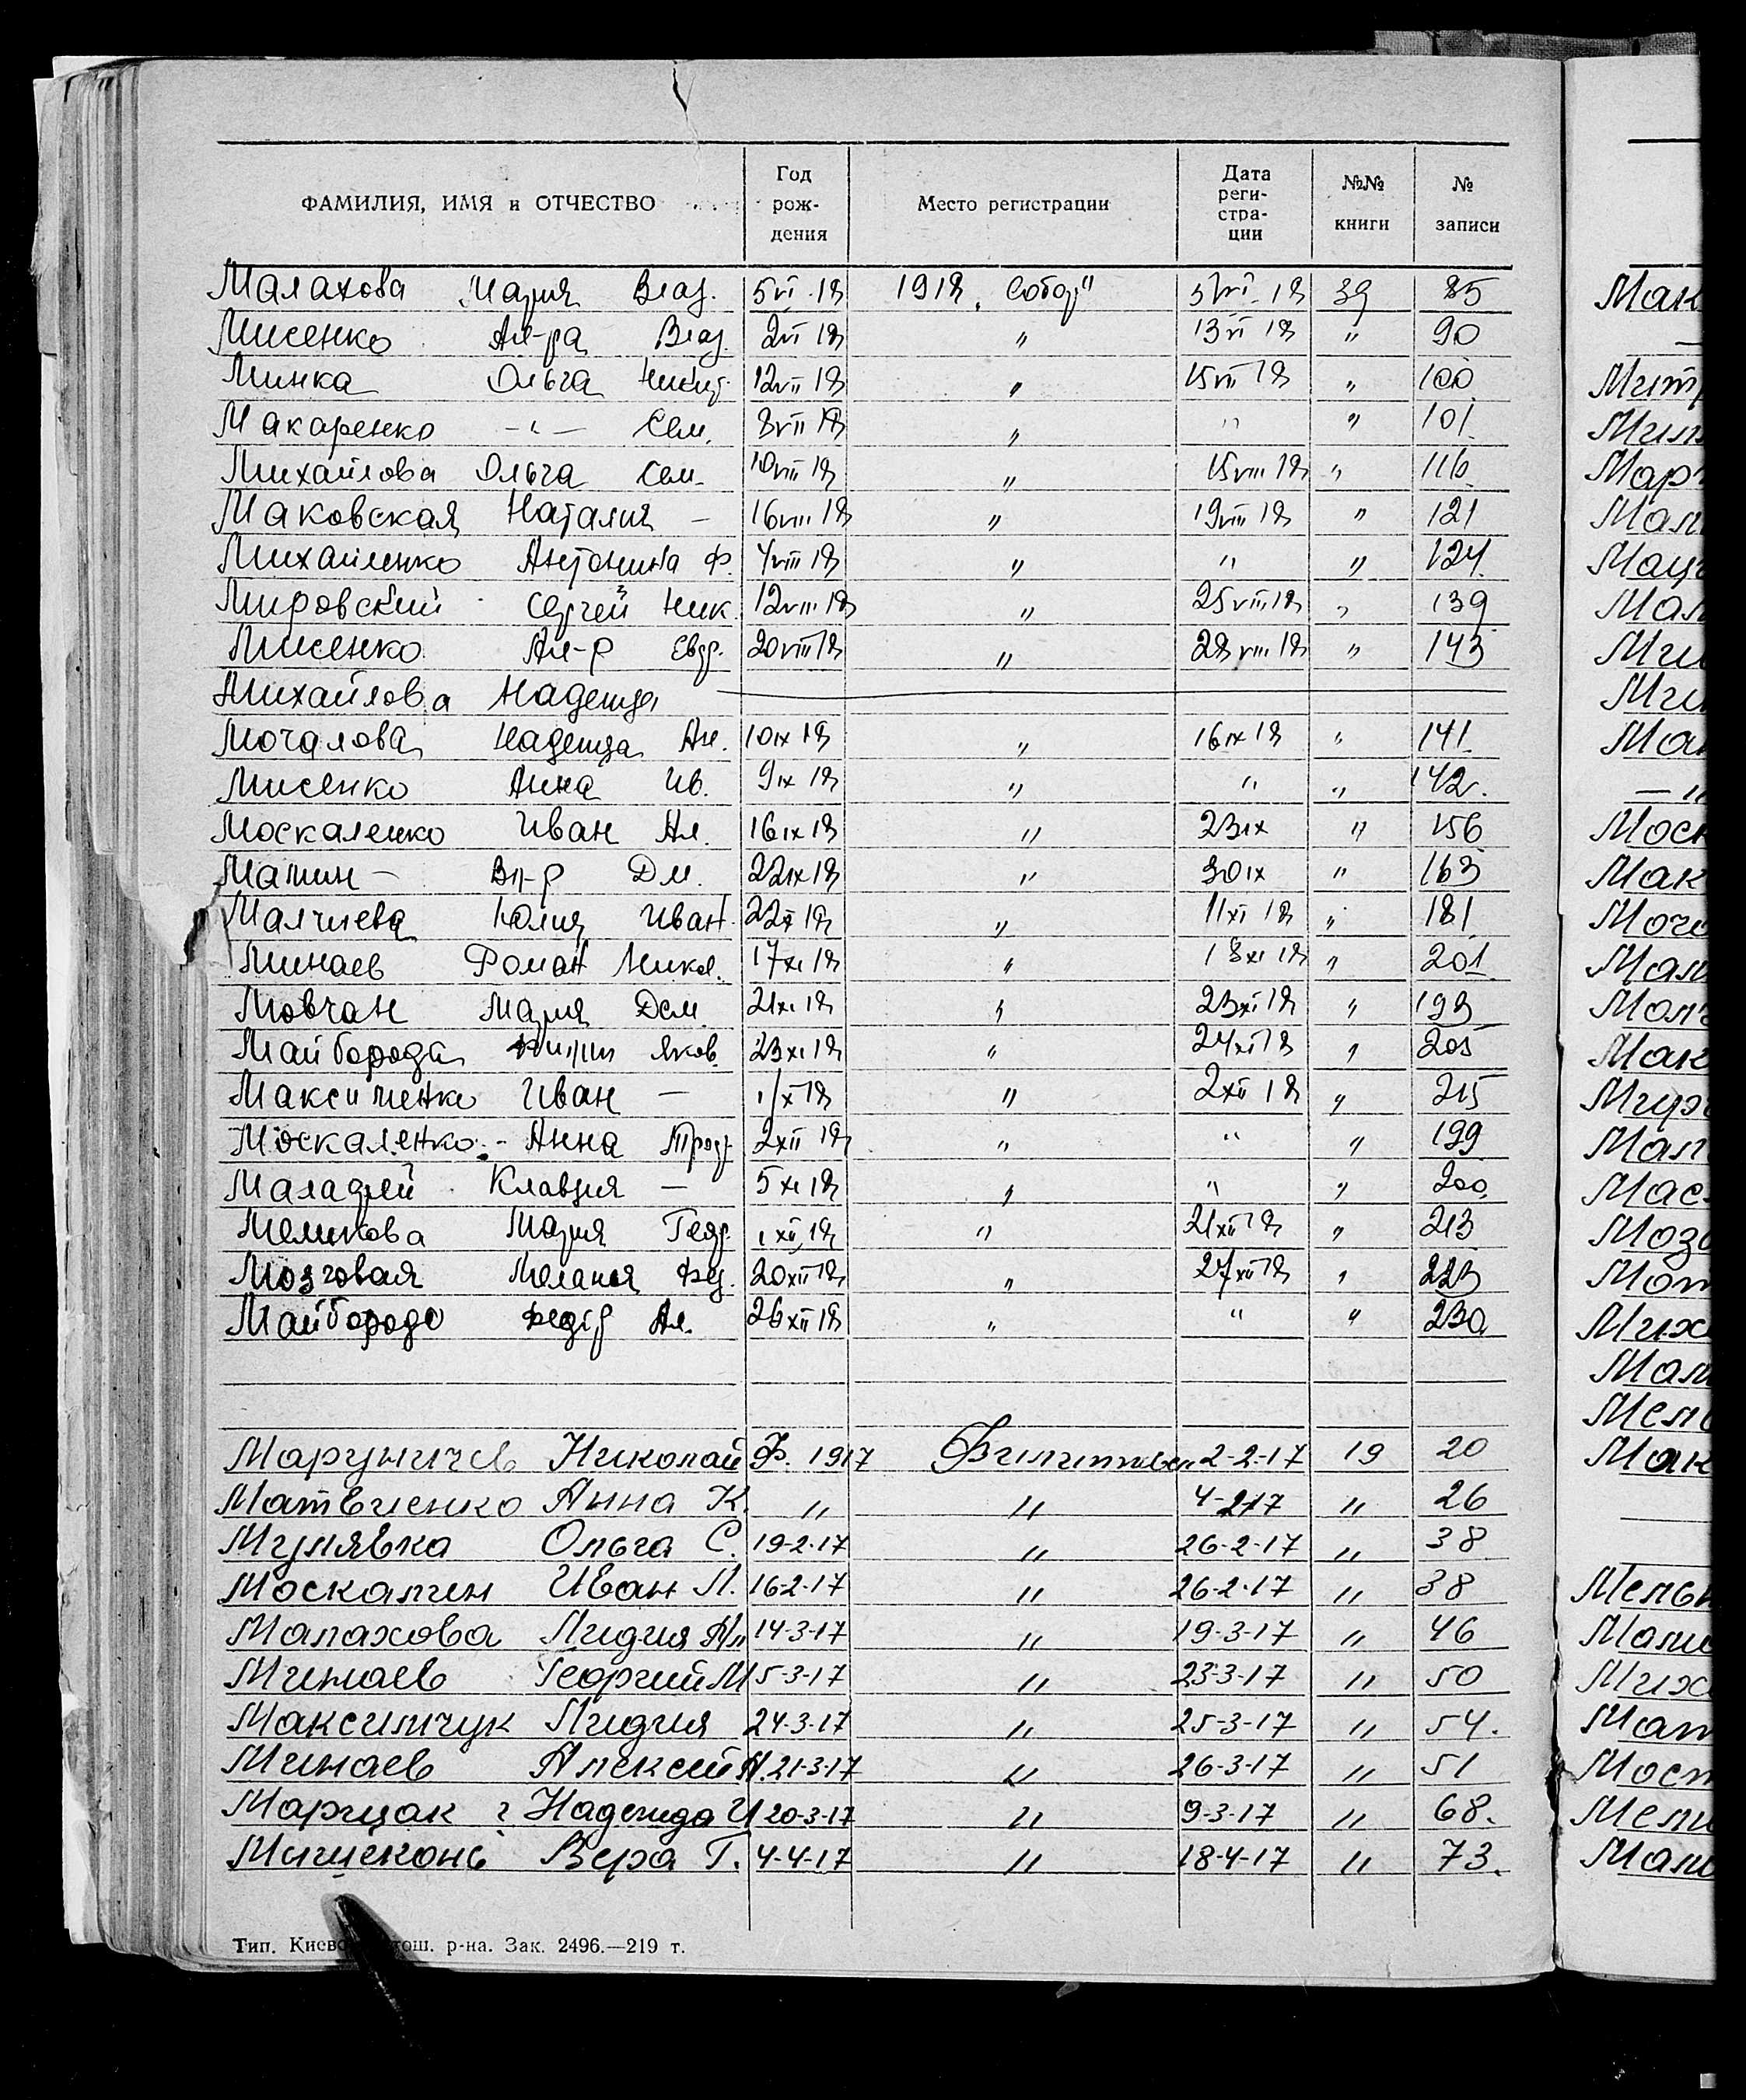 ФАМИЛИЯ, ИМЯ и ОТЧЕСТВО Год рождения Место регистрации Дата регистрации №№ книги № записи
Малахова Мария Влад. 5 VI 18 1918 "Собор" 5 VI 18 39 85
Мисенко Ал-ра Влад. 2 VI 18 " 13 VI 18 " 90
Минка Ольга Никит. 12 VII 18 " 15 VII 18 " 100
Макаренко -"- Сем. 8 VII 18 " " " 101
Михайлова Ольга Сем. 10 VIII 18 " 15 VIII 18 " 116
Маковская Наталия - 16 VIII 18 " 19 VIII 18 " 121
Михайленко Антонина Ф. 4 VIII 18 " " " 124
Мировский Сергей Ник. 12 VIII 18 " 25 VIII 18 " 139
Мисенко Ал-р Евд. 20 VIII 18 " 28 VIII 18 " 143
Михайлова Надежда
Мочалова Надежда Ал. 10 IX 18 " 16 IX 18 " 141
Мисенко Анна Ив. 9 IX 18 " " " 142
Москаленко Иван Ал. 16 IX 18 " 23 IX " 156
Матин - Вл-р Дм. 22 IX 18 " 30 IX " 163
Малчиева Юлия Иван. 22 X 18 " 11 XI 18 " 181
Минаев Роман Никол. 17 XI 18 " 18 XI 18 " 201
Мовчан Мария Дем. 21 XI 18 " 23 XI 18 " 193
Майборода Яков. 23 XI 18 " 24 XI 18 " 205
Максименко Иван - " 2 XII 18 " 215
Москаленко - Анна Проф. 2 XII 18 " " " 199
Маладией Клавдия - 5 XI 18 " " " 200
Меликова Мария Геор. 1 XII 18 " 21 XII 18 " 213
Мозговая Мелания Фед. 20 XII 18 " 27 XII 18 " 223
Майбородо Федір Ал. 26 XII 18 " " " 230
Маргуничев Николай Ф. 1917 2-2-17 19 20
Матвиенко Анна К. " " 4-2-17 " 26
Мулявка Ольга С. 19-2-17 " 26-2-17 " 38
Москалин Иван Л. 16-2-17 " 26-2-17 " 38
Малахова Лидия Ал 14-3-17 " 19-3-17 " 46
Минаев Георгий М 15-3-17 " 23-3-17 " 50
Максимчук Лидия 24-3-17 " 25-3-17 " 54.
Минаев Алексей А. 21-3-17 " 26-3-17 " 51
Марцак ? Надежда И 20-3-17 " 9-3-17 " 68.
Вера Г. 4-4-17 " 18-4-17 " 73.
Тип. р-на. Зак. 2496.—219 т.
Мак
Мит
Мил
Мар
Мал
Мац
Мал
Ми
Ми
Ма
— "
Моск
Мак
Моч
Мал
Молч
Мак
Мур
Мал
Мас
Мозо
Мот
Мих
Мал
Мель
Мак
Мельн
Мали
Мих
Мат
Мост
Мели
Мали